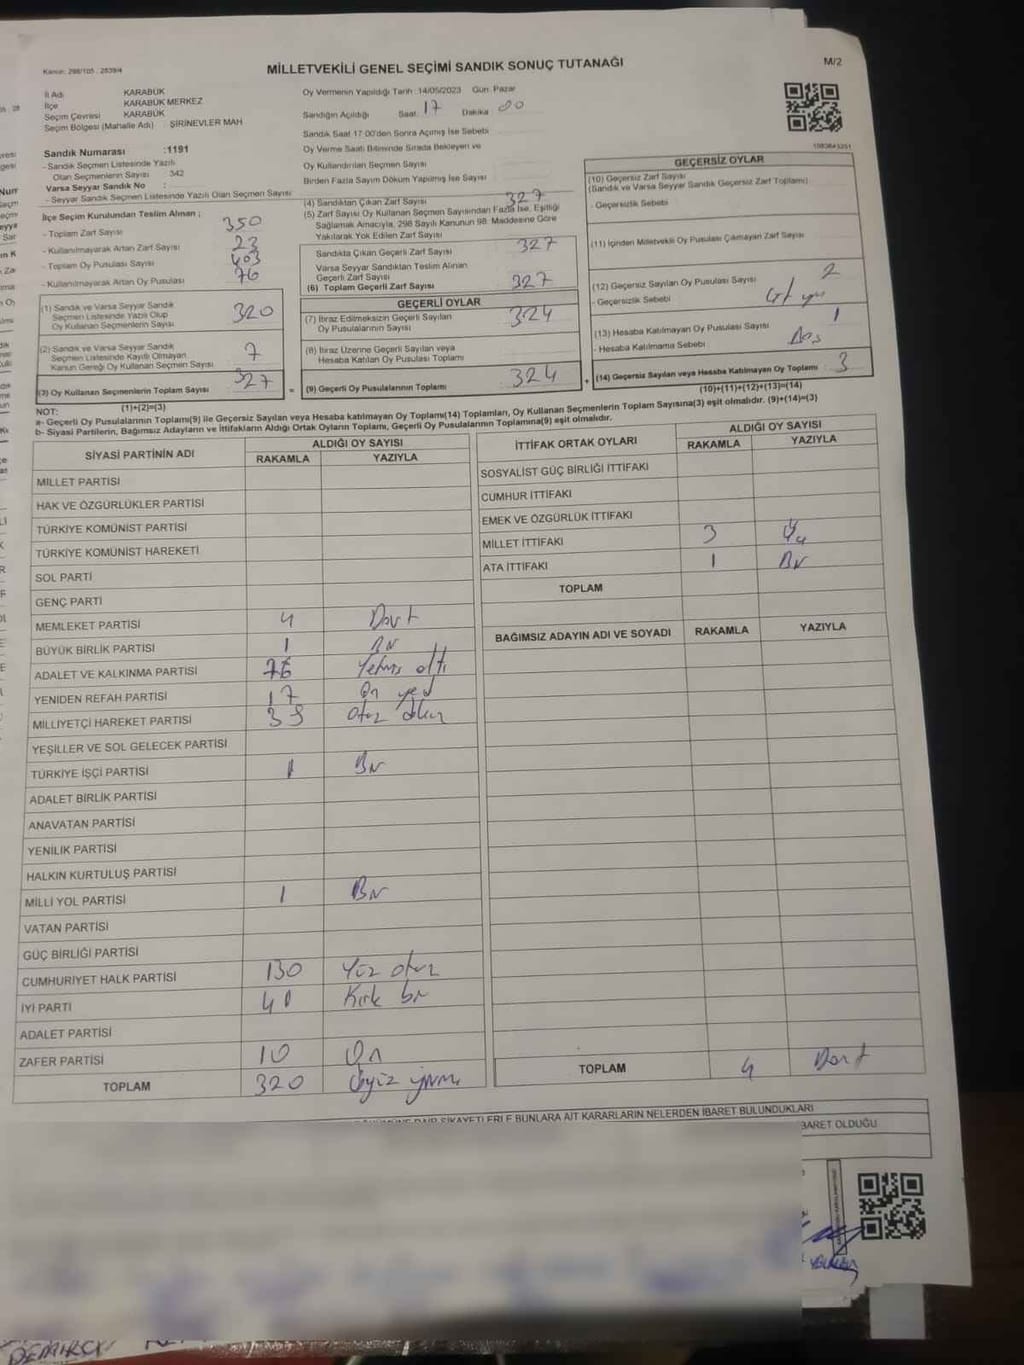 Kanun: 298/105 , 2839/4
MİLLETVEKİLİ GENEL SEÇİMİ SANDIK SONUÇ TUTANAĞI
M/2
İl Adı KARABÜK
İlçe KARABÜK MERKEZ
Seçim Çevresi KARABÜK
Seçim Bölgesi (Mahalle Adı) ŞİRİNEVLER MAH
Sandık Numarası :1191
- Sandık Seçmen Listesinde Yazılı
Olan Seçmenlerin Sayısı 342
Varsa Seyyar Sandık No :
- Seyyar Sandık Seçmen Listesinde Yazılı Olan Seçmen Sayısı
Oy Vermenin Yapıldığı Tarih :14/05/2023 Gün: Pazar
Sandığın Açıldığı Saat: 17 Dakika 00
Sandık Saat 17:00'den Sonra Açılmış İse Sebebi
Oy Verme Saati Bitiminde Sırada Bekleyen ve
Oy Kullandırılan Seçmen Sayısı
Birden Fazla Sayım Döküm Yapılmış İse Sayısı
İlçe Seçim Kurulundan Teslim Alınan ;
- Toplam Zarf Sayısı 350
- Kullanılmayarak Artan Zarf Sayısı 23
- Toplam Oy Pusulası Sayısı 403
- Kullanılmayarak Artan Oy Pusulası 76
(1) Sandık ve Varsa Seyyar Sandık
Seçmen Listesinde Yazılı Olup
Oy Kullanan Seçmenlerin Sayısı 320
(2) Sandık ve Varsa Seyyar Sandık
Seçmen Listesinde Kayıtlı Olmayan
Kanun Gereği Oy Kullanan Seçmen Sayısı 7
(3) Oy Kullanan Seçmenlerin Toplam Sayısı 327
(1)+(2)=(3)
(4) Sandıktan Çıkan Zarf Sayısı 327
(5) Zarf Sayısı Oy Kullanan Seçmen Sayısından Fazla İse, Eşitliği
Sağlamak Amacıyla, 298 Sayılı Kanunun 98. Maddesine Göre
Yakılarak Yok Edilen Zarf Sayısı
Sandıkta Çıkan Geçerli Zarf Sayısı 327
Varsa Seyyar Sandıktan Teslim Alınan
Geçerli Zarf Sayısı
(6) Toplam Geçerli Zarf Sayısı 327
GEÇERLİ OYLAR
(7) İtiraz Edilmeksizin Geçerli Sayılan
Oy Pusulalarının Sayısı 324
(8) İtiraz Üzerine Geçerli Sayılan veya
Hesaba Katılan Oy Pusulası Toplamı
= (9) Geçerli Oy Pusulalarının Toplamı 324
GEÇERSİZ OYLAR
(10) Geçersiz Zarf Sayısı
(Sandık ve Varsa Seyyar Sandık Geçersiz Zarf Toplamı)
- Geçersizlik Sebebi
(11) İçinden Milletvekili Oy Pusulası Çıkmayan Zarf Sayısı
(12) Geçersiz Sayılan Oy Pusulası Sayısı 2
- Geçersizlik Sebebi
(13) Hesaba Katılmayan Oy Pusulası Sayısı 1
- Hesaba Katılmama Sebebi
+ (14) Geçersiz Sayılan veya Hesaba Katılmayan Oy Toplamı 3
(10)+(11)+(12)+(13)=(14)
NOT:
a- Geçerli Oy Pusulalarının Toplamı(9) ile Geçersiz Sayılan veya Hesaba katılmayan Oy Toplamı(14) Toplamları, Oy Kullanan Seçmenlerin Toplam Sayısına(3) eşit olmalıdır. (9)+(14)=(3)
b- Siyasi Partilerin, Bağımsız Adayların ve İttifakların Aldığı Ortak Oyların Toplamı, Geçerli Oy Pusulalarının Toplamına(9) eşit olmalıdır.
SİYASİ PARTİNİN ADI ALDIĞI OY SAYISI
RAKAMLA YAZIYLA
MİLLET PARTİSİ
HAK VE ÖZGÜRLÜKLER PARTİSİ
TÜRKİYE KOMÜNİST PARTİSİ
TÜRKİYE KOMÜNİST HAREKETİ
SOL PARTİ
GENÇ PARTİ
MEMLEKET PARTİSİ 4 Dört
BÜYÜK BİRLİK PARTİSİ 1 Bir
ADALET VE KALKINMA PARTİSİ 76 Yetmiş altı
YENİDEN REFAH PARTİSİ 17 On yedi
MİLLİYETÇİ HAREKET PARTİSİ 39 Otuz dokuz
YEŞİLLER VE SOL GELECEK PARTİSİ
TÜRKİYE İŞÇİ PARTİSİ 1 Bir
ADALET BİRLİK PARTİSİ
ANAVATAN PARTİSİ
YENİLİK PARTİSİ
HALKIN KURTULUŞ PARTİSİ
MİLLİ YOL PARTİSİ 1 Bir
VATAN PARTİSİ
GÜÇ BİRLİĞİ PARTİSİ
CUMHURİYET HALK PARTİSİ 130 Yüz otuz
İYİ PARTİ 41 Kırk bir
ADALET PARTİSİ
ZAFER PARTİSİ 10 On
TOPLAM 320 Üçyüz yirmi
İTTİFAK ORTAK OYLARI ALDIĞI OY SAYISI
RAKAMLA YAZIYLA
SOSYALİST GÜÇ BİRLİĞİ İTTİFAKI
CUMHUR İTTİFAKI
EMEK VE ÖZGÜRLÜK İTTİFAKI
MİLLET İTTİFAKI 3 Üç
ATA İTTİFAKI 1 Bir
TOPLAM
BAĞIMSIZ ADAYIN ADI VE SOYADI RAKAMLA YAZIYLA
TOPLAM 4 Dört
ŞİKAYETLERLE BUNLARA AİT KARARLARIN NELERDEN İBARET BULUNDUKLARI
BARET OLDUĞU
DEMİRCİ